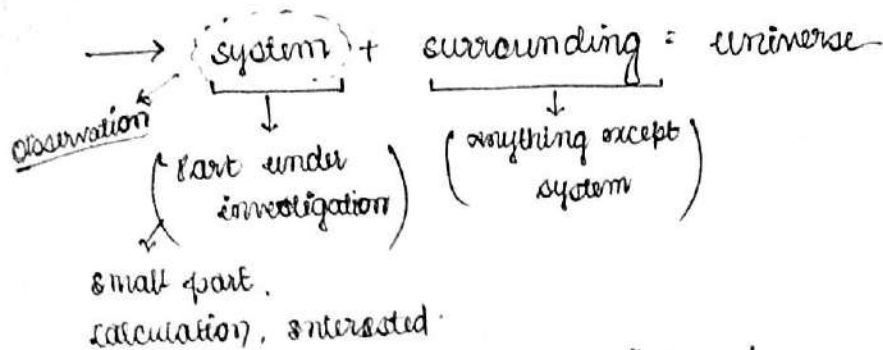 → system + surrounding = universe
observation
(Part under investigation)
(anything except system)
small part.
calculation, interested.